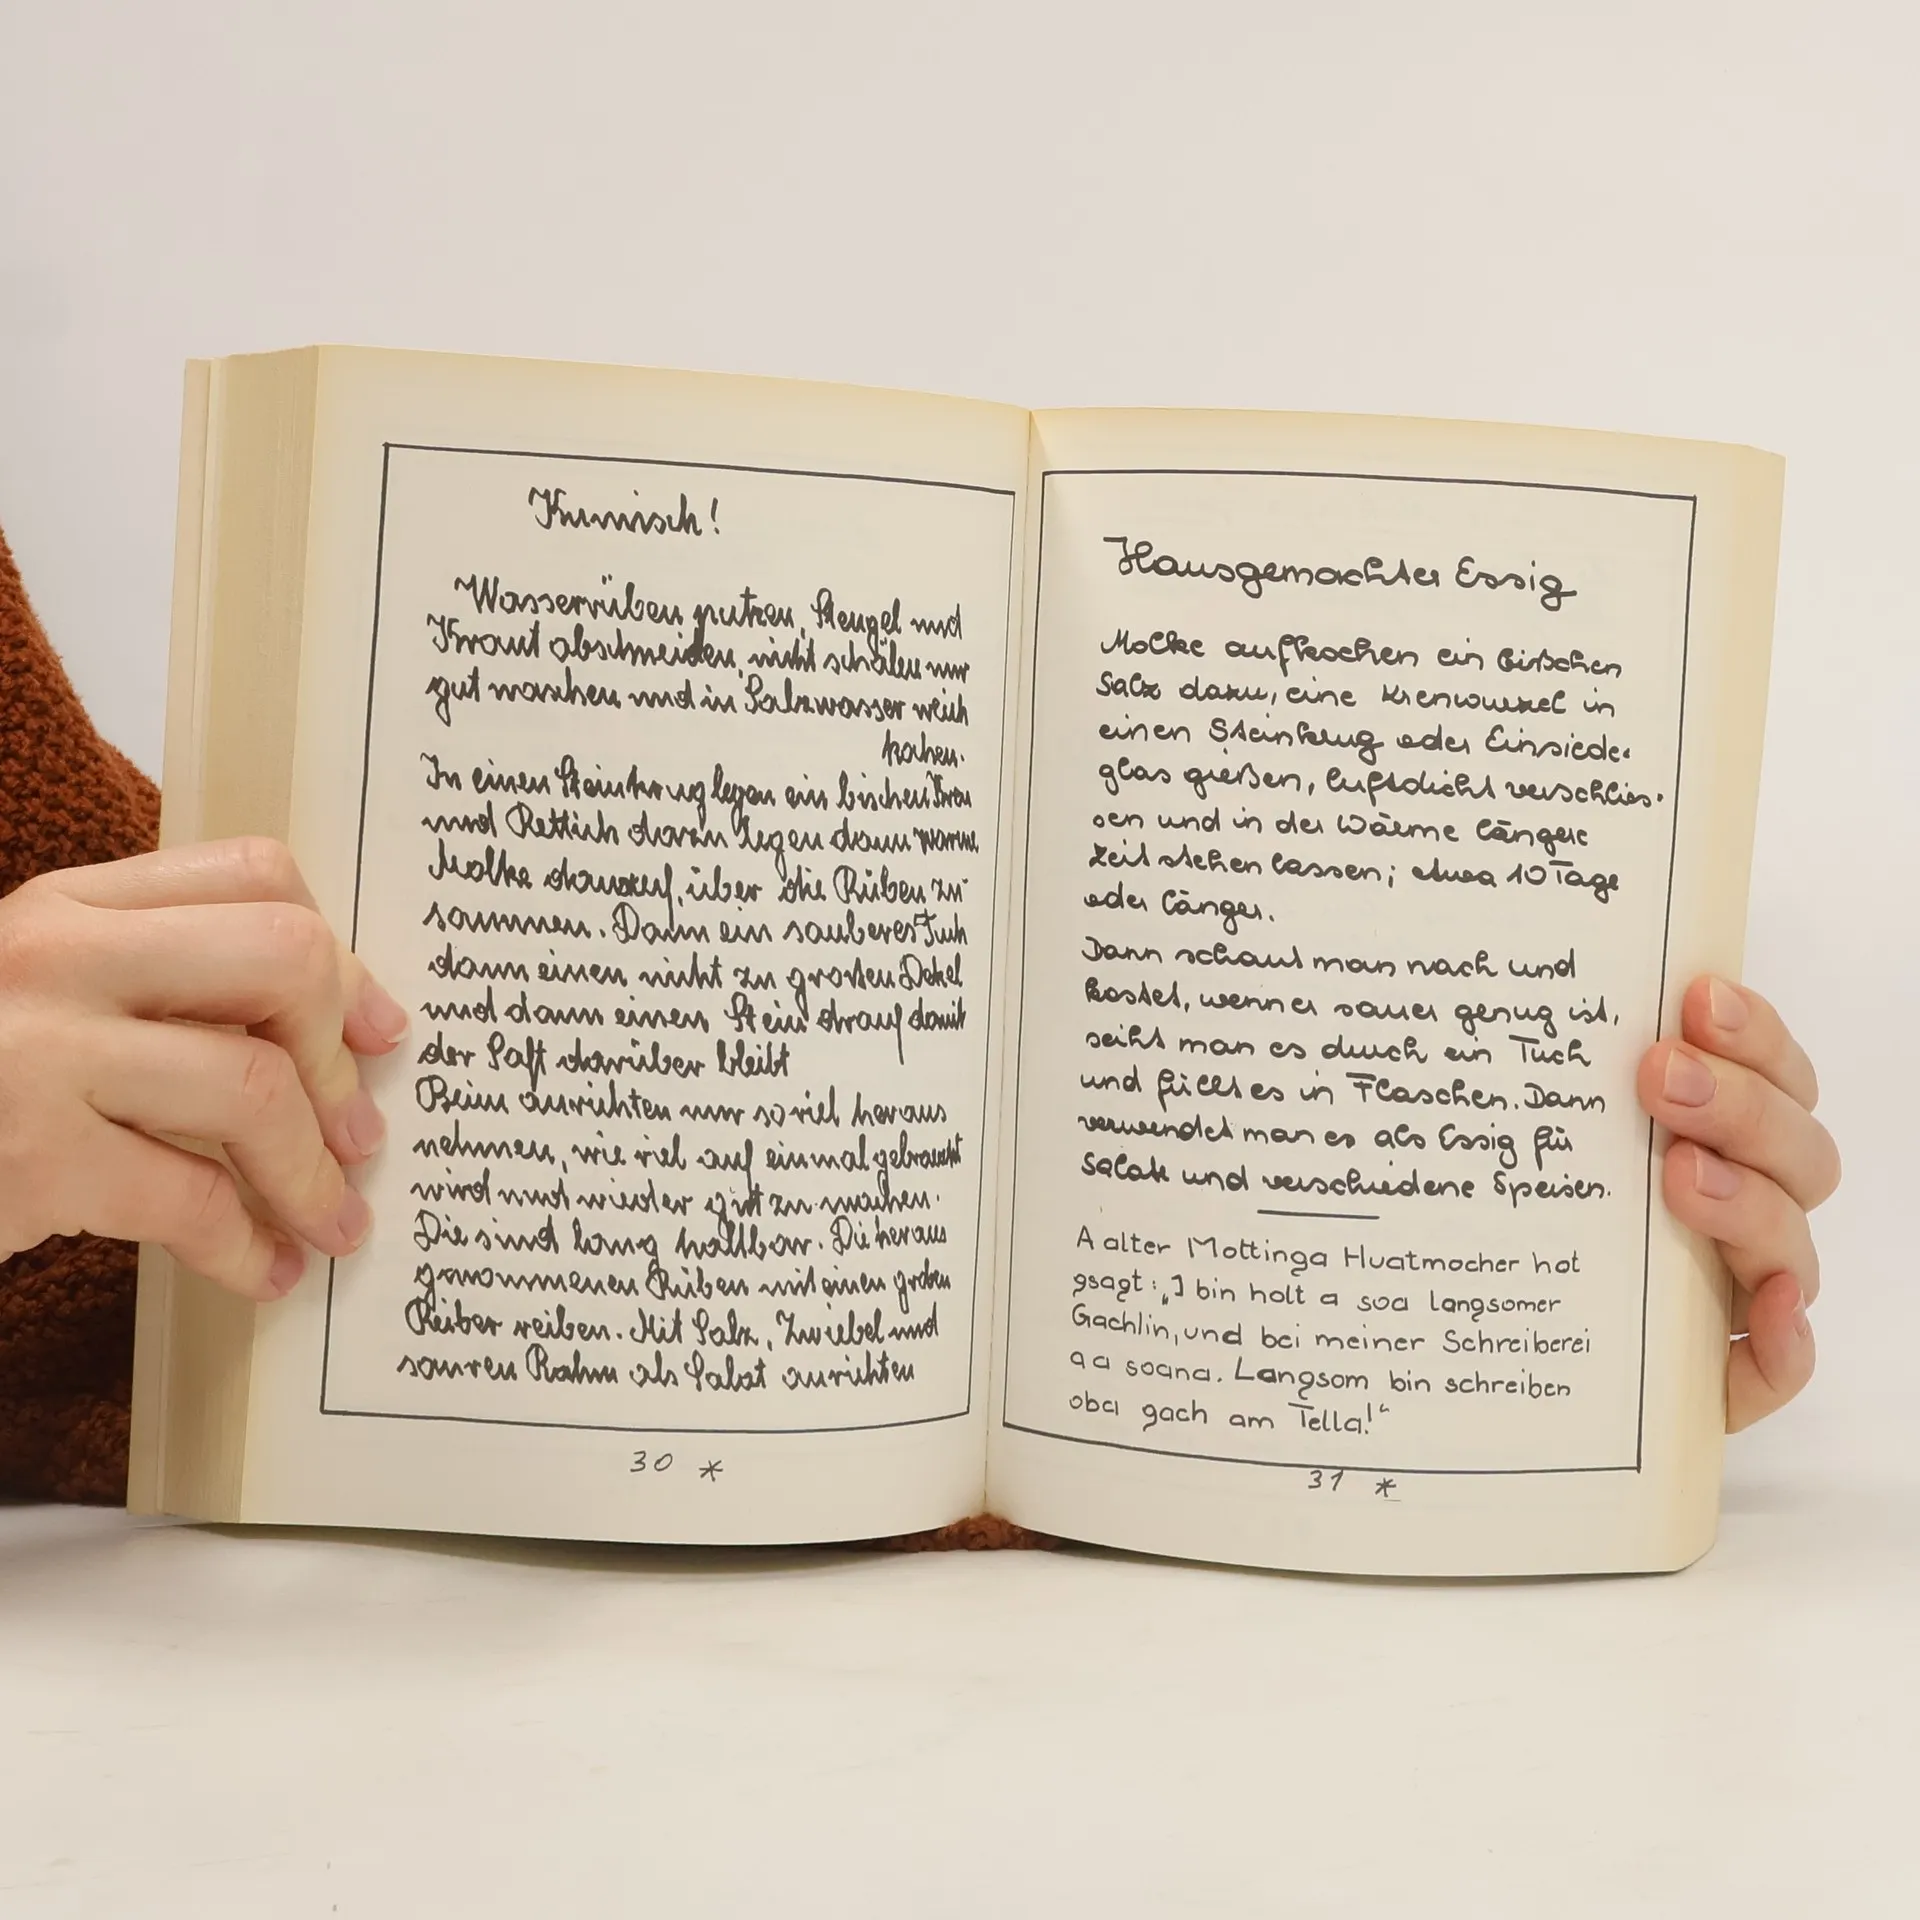 Kumisch!
Wasserrüben putzen, Stengel und
Kraut abschneiden, nicht schälen nur
gut waschen und in Salzwasser weich
kohen.
In einen Steinkrug legen ein bischen Kren
und Rettich darzu legen dann warme
Molke darauf, über die Rüben zu-
sammen. Dann ein sauberes Tuch
dann einen nicht zu großen Dekel
und dann einen Stein drauf damit
der Saft darüber bleibt
Beim anrichten nur so viel heraus
nehmen, wie viel auf einmal gebraucht
wird und wieder gut zu machen.
Die sind lang haltbar. Die heraus
genommenen Rüben mit einen groben
Reiber reiben. Mit Salz, Zwiebel und
sauren Rahm als Salat anrichten
30 *
Hausgemachter Essig
Molke aufkochen ein bißchen
Salz dazu, eine Krenwurzel in
einen Steinkrug oder Einsiede-
glas gießen, luftdicht verschlies-
sen und in der Wärme längere
Zeit stehen lassen; etwa 10 Tage
oder länger.
Dann schaut man nach und
kostet, wenn er sauer genug ist,
seiht man es durch ein Tuch
und füllt es in Flaschen. Dann
verwendet man es als Essig für
Salate und verschiedene Speisen.
A alter Mottinga Huatmocher hot
gsagt: „I bin holt a soa langsomer
Gachlin, und bei meiner Schreiberei
aa soana. Langsom bin schreiben
oba gach am Tella!“
31 *